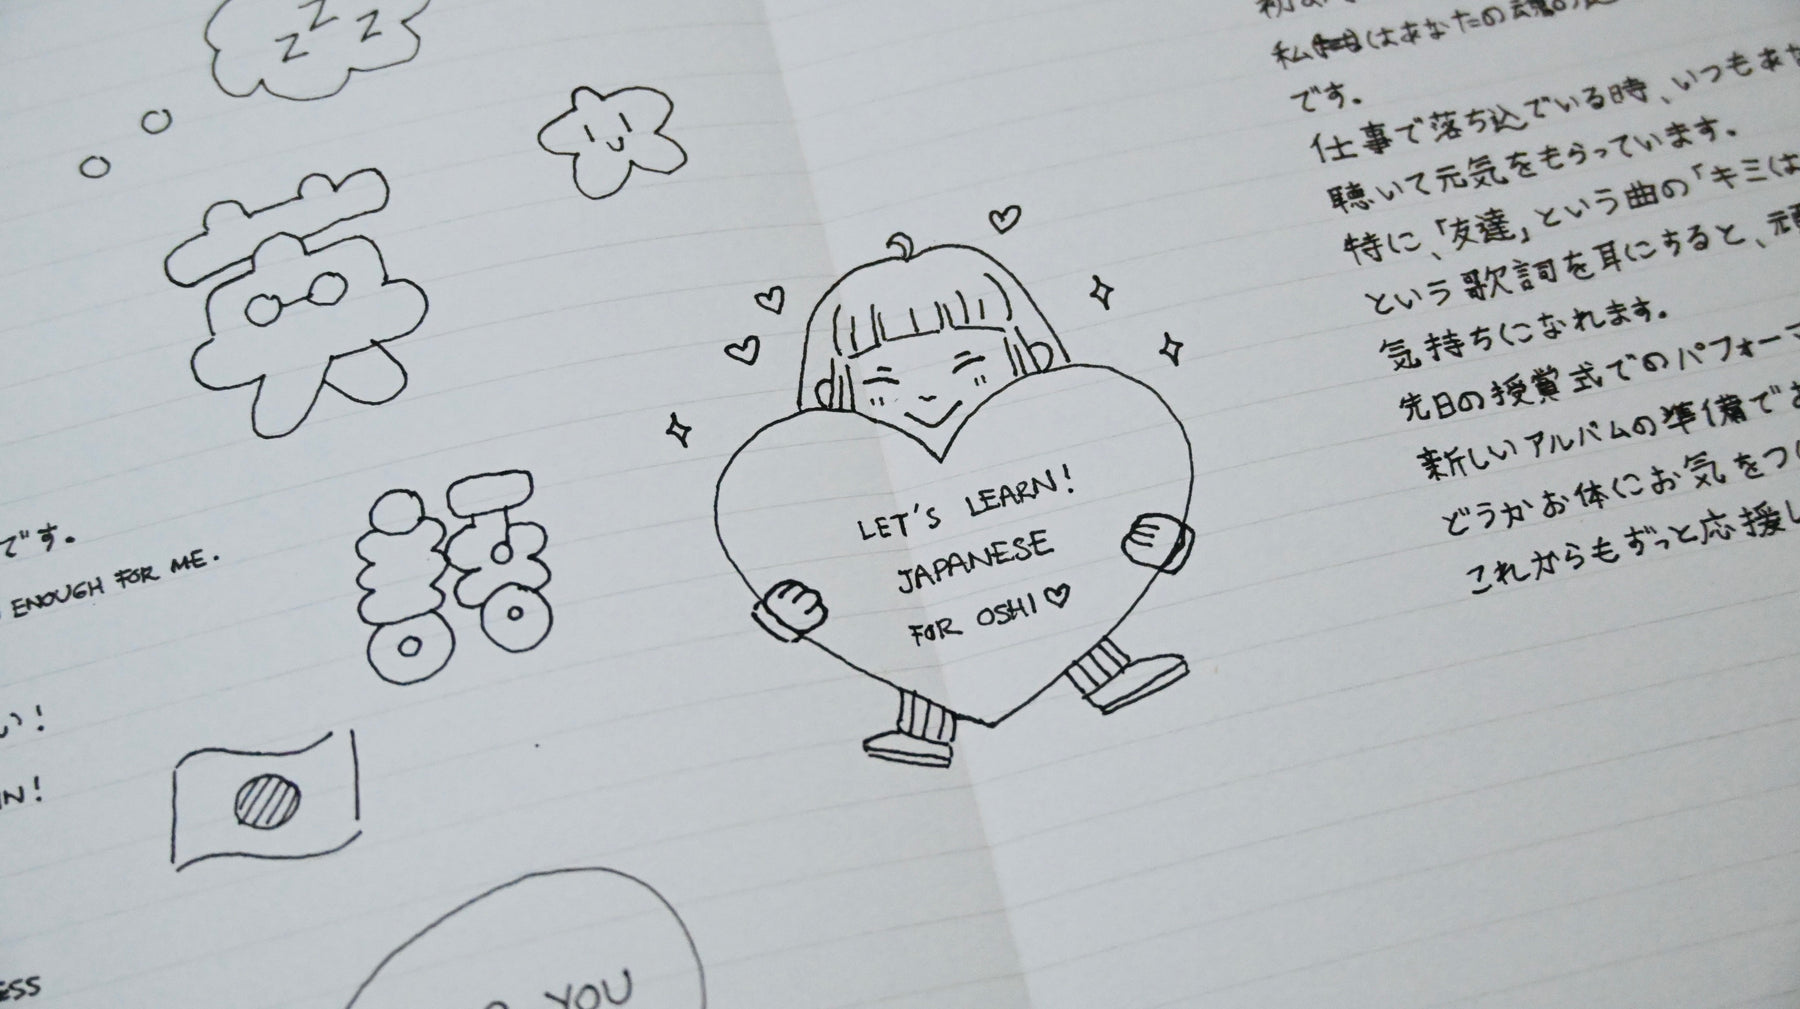 Z Z Z
です。
ENOUGH FOR ME.
い!
IN!
ESS
YOU
LET'S LEARN!
JAPANESE
FOR OSHI♡
私はあなたの
です。
仕事で落ち込でいる時、いつもあな
聴いて元気をもらっています。
特に、「友達」という曲の「キミは
という歌詞を耳にすると、
気持ちになれます。
先日の授賞式でのパフォーマ
新しいアルバムの準備でお
どうかお体にお気をつけ
これからもずっと応援し